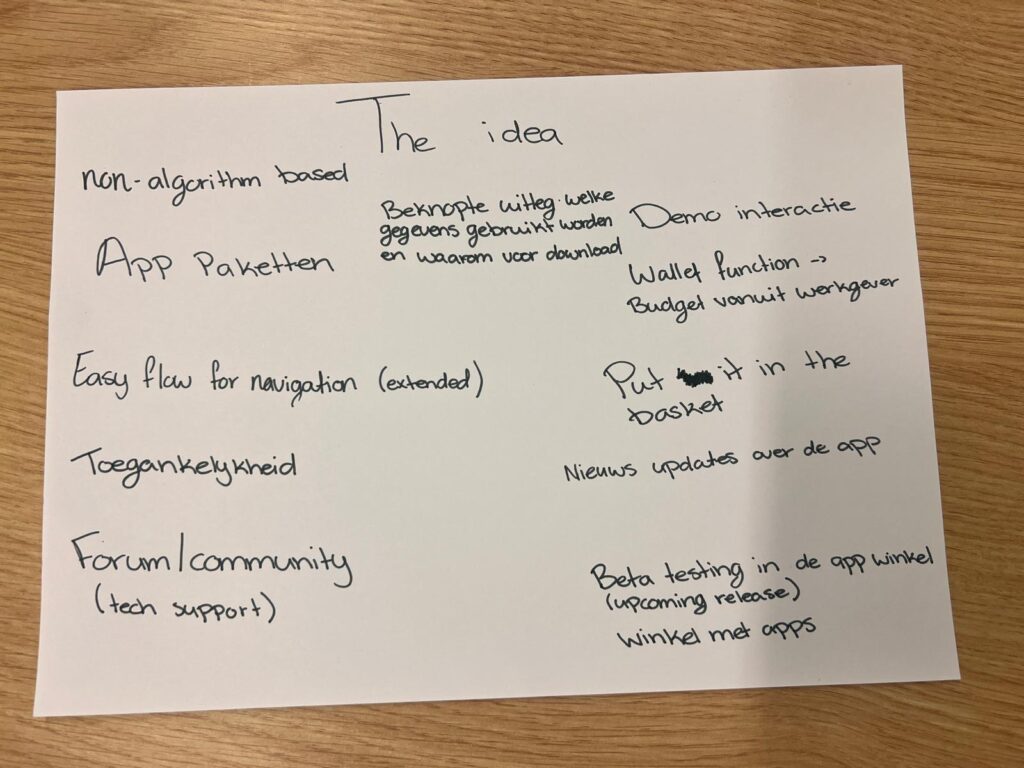 The idea
non-algorithm based
App Paketten
Easy flow for navigation (extended)
Toegankelykheid
Forum/community
(tech support)
Beknopte uitleg welke
gegevens gebruikt worden
en waarom voor download
Demo interactie
Wallet function ->
Budget vanuit werkgever
Put it in the
basket
Nieuws updates over de app
Beta testing in de app winkel
(upcoming release)
winkel met apps